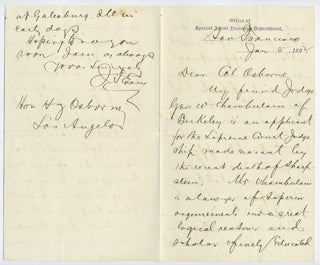 Office of
Special Agent Treasury Department,
San Francisco
Jan 5 189
Dear Col Osborne
My friend Judge
Geo W Chamberlain of
Berkeley is an applicant
for the Supreme Court Judge
ship made vacant by
the recent death of Sharp
stein. Mr Chamberlain
is a lawyer of superior
acquirements and a great
logical reasoner and
scholar finely Educated
at Galesburg. Ill in
early days
Hoping to see you
soon I am as always
Yours Sincerely
J Evans
Hon H Z Osborne
Los Angeles